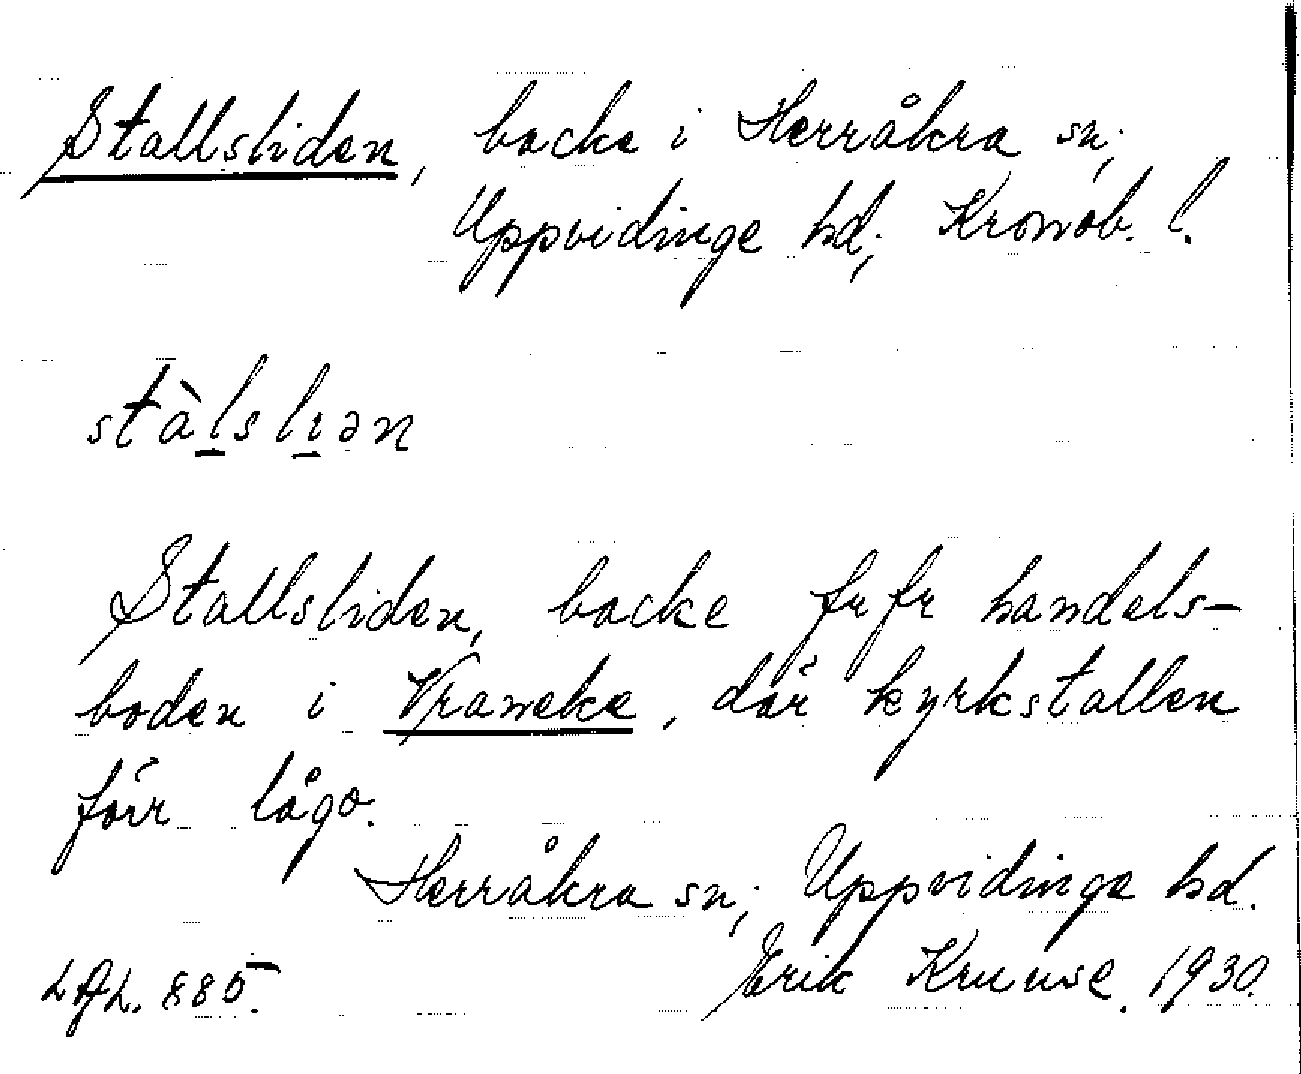 Stallsliden, backe i Herråkra sn,
Uppvidinge hd, Kronob. l.
stàlslıən
Stallsliden, backe fr fr handels-
boden i Vraneke, där kyrkstallen
förr lågo.
Herråkra sn, Uppvidinge hd.
Erik Kruuse. 1930.
885.